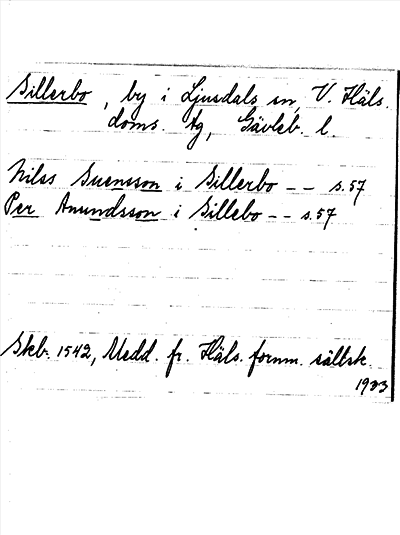 Sillerbo, by i Ljusdals sn, V. Häls.
doms. tg, Gävleb. l.
Nilss Suensson i Sillerbo -- s. 57
Per Anundsson i Sillebo -- s. 57
Skb. 1542, Medd. fr. Häls. fornm. sällsk.
1903